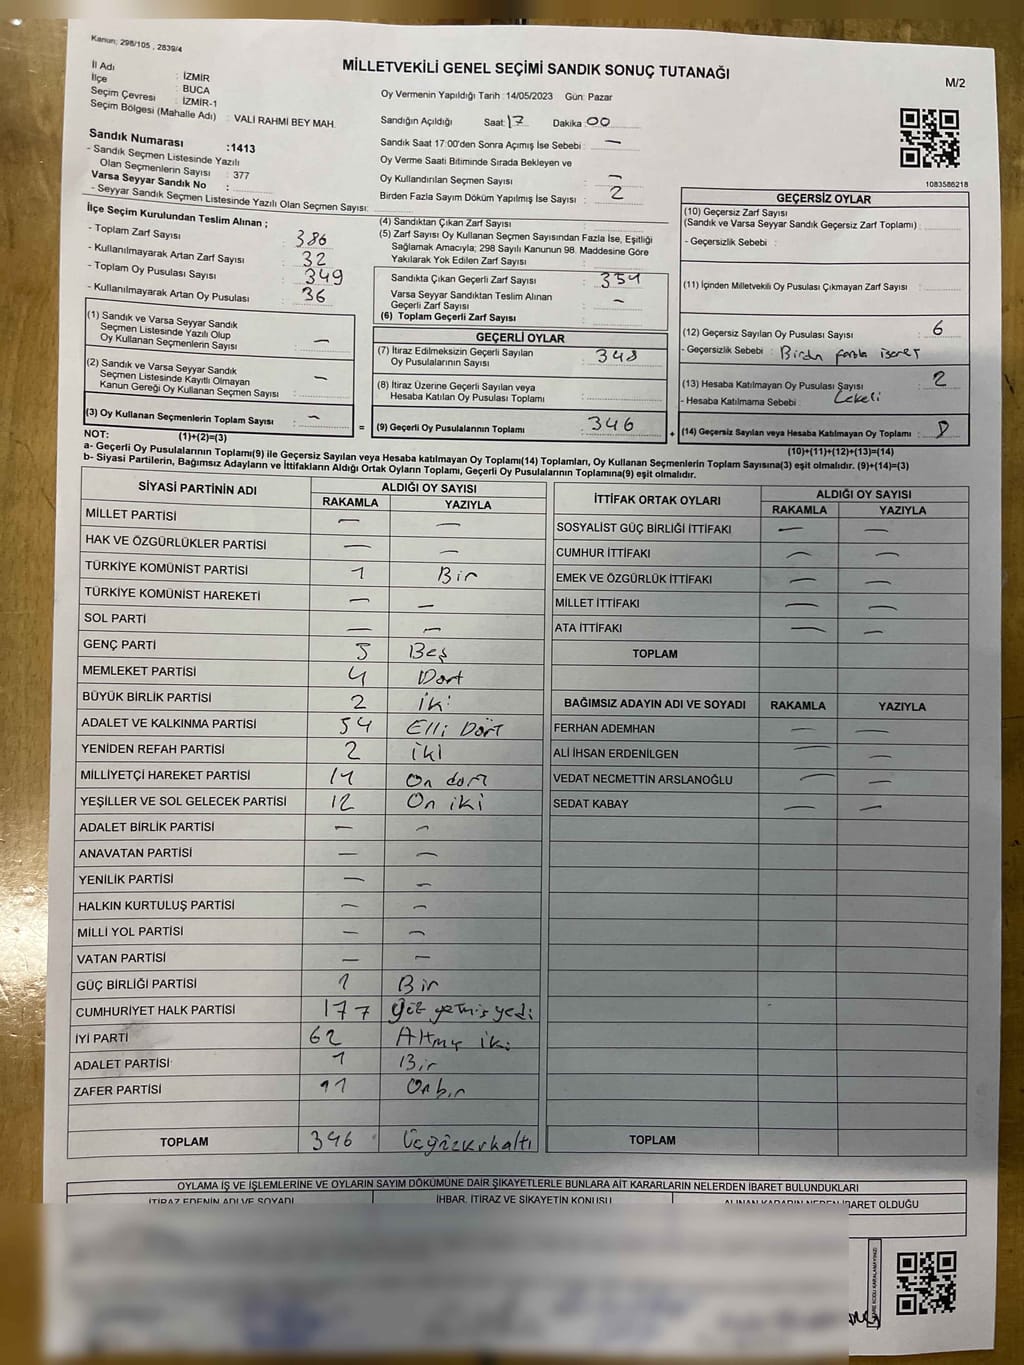 Kanun; 298/105 , 2839/4
MİLLETVEKİLİ GENEL SEÇİMİ SANDIK SONUÇ TUTANAĞI
M/2
İl Adı : İZMİR
İlçe : BUCA
Seçim Çevresi : İZMİR-1
Seçim Bölgesi (Mahalle Adı) : VALİ RAHMİ BEY MAH.
Oy Vermenin Yapıldığı Tarih :14/05/2023 Gün: Pazar
Sandığın Açıldığı Saat: 17 Dakika: 00
Sandık Saat 17:00'den Sonra Açımış İse Sebebi : —
Oy Verme Saati Bitiminde Sırada Bekleyen ve
Oy Kullandırılan Seçmen Sayısı : —
Birden Fazla Sayım Döküm Yapılmış İse Sayısı : 2
1083586218
Sandık Numarası :1413
- Sandık Seçmen Listesinde Yazılı
Olan Seçmenlerin Sayısı : 377
Varsa Seyyar Sandık No :
- Seyyar Sandık Seçmen Listesinde Yazılı Olan Seçmen Sayısı:
İlçe Seçim Kurulundan Teslim Alınan ;
- Toplam Zarf Sayısı : 386
- Kullanılmayarak Artan Zarf Sayısı : 32
- Toplam Oy Pusulası Sayısı : 349
- Kullanılmayarak Artan Oy Pusulası : 36
(1) Sandık ve Varsa Seyyar Sandık
Seçmen Listesinde Yazılı Olup
Oy Kullanan Seçmenlerin Sayısı : —
(2) Sandık ve Varsa Seyyar Sandık
Seçmen Listesinde Kayıtlı Olmayan
Kanun Gereği Oy Kullanan Seçmen Sayısı : —
(3) Oy Kullanan Seçmenlerin Toplam Sayısı : —
(1)+(2)=(3)
(4) Sandıktan Çıkan Zarf Sayısı :
(5) Zarf Sayısı Oy Kullanan Seçmen Sayısından Fazla İse, Eşitliği
Sağlamak Amacıyla; 298 Sayılı Kanunun 98. Maddesine Göre
Yakılarak Yok Edilen Zarf Sayısı :
Sandıkta Çıkan Geçerli Zarf Sayısı : 354
Varsa Seyyar Sandıktan Teslim Alınan
Geçerli Zarf Sayısı : —
(6) Toplam Geçerli Zarf Sayısı :
GEÇERLİ OYLAR
(7) İtiraz Edilmeksizin Geçerli Sayılan
Oy Pusulalarının Sayısı : 348
(8) İtiraz Üzerine Geçerli Sayılan veya
Hesaba Katılan Oy Pusulası Toplamı :
= (9) Geçerli Oy Pusulalarının Toplamı : 346
GEÇERSİZ OYLAR
(10) Geçersiz Zarf Sayısı
(Sandık ve Varsa Seyyar Sandık Geçersiz Zarf Toplamı) :
- Geçersizlik Sebebi :
(11) İçinden Milletvekili Oy Pusulası Çıkmayan Zarf Sayısı :
(12) Geçersiz Sayılan Oy Pusulası Sayısı : 6
- Geçersizlik Sebebi : Birdn fazla işaret
(13) Hesaba Katılmayan Oy Pusulası Sayısı : 2
- Hesaba Katılmama Sebebi : Lekeli
+ (14) Geçersiz Sayılan veya Hesaba Katılmayan Oy Toplamı : 8
(10)+(11)+(12)+(13)=(14)
NOT:
a- Geçerli Oy Pusulalarının Toplamı(9) ile Geçersiz Sayılan veya Hesaba katılmayan Oy Toplamı(14) Toplamları, Oy Kullanan Seçmenlerin Toplam Sayısına(3) eşit olmalıdır. (9)+(14)=(3)
b- Siyasi Partilerin, Bağımsız Adayların ve İttifakların Aldığı Ortak Oyların Toplamı, Geçerli Oy Pusulalarının Toplamına(9) eşit olmalıdır.
SİYASİ PARTİNİN ADI ALDIĞI OY SAYISI
RAKAMLA YAZIYLA
MİLLET PARTİSİ — —
HAK VE ÖZGÜRLÜKLER PARTİSİ — —
TÜRKİYE KOMÜNİST PARTİSİ 1 Bir
TÜRKİYE KOMÜNİST HAREKETİ — —
SOL PARTİ — —
GENÇ PARTİ 5 Beş
MEMLEKET PARTİSİ 4 Dört
BÜYÜK BİRLİK PARTİSİ 2 iki
ADALET VE KALKINMA PARTİSİ 54 Elli Dört
YENİDEN REFAH PARTİSİ 2 iki
MİLLİYETÇİ HAREKET PARTİSİ 14 On dört
YEŞİLLER VE SOL GELECEK PARTİSİ 12 On iki
ADALET BİRLİK PARTİSİ — —
ANAVATAN PARTİSİ — —
YENİLİK PARTİSİ — —
HALKIN KURTULUŞ PARTİSİ — —
MİLLİ YOL PARTİSİ — —
VATAN PARTİSİ — —
GÜÇ BİRLİĞİ PARTİSİ 1 Bir
CUMHURİYET HALK PARTİSİ 177 yüz yetmiş yedi
İYİ PARTİ 62 Altmış iki
ADALET PARTİSİ 1 Bir
ZAFER PARTİSİ 11 Onbir
TOPLAM 346 Üçyüzkırkaltı
İTTİFAK ORTAK OYLARI ALDIĞI OY SAYISI
RAKAMLA YAZIYLA
SOSYALİST GÜÇ BİRLİĞİ İTTİFAKI — —
CUMHUR İTTİFAKI — —
EMEK VE ÖZGÜRLÜK İTTİFAKI — —
MİLLET İTTİFAKI — —
ATA İTTİFAKI — —
TOPLAM
BAĞIMSIZ ADAYIN ADI VE SOYADI RAKAMLA YAZIYLA
FERHAN ADEMHAN — —
ALİ İHSAN ERDENİLGEN — —
VEDAT NECMETTİN ARSLANOĞLU — —
SEDAT KABAY — —
TOPLAM
OYLAMA İŞ VE İŞLEMLERİNE VE OYLARIN SAYIM DÖKÜMÜNE DAİR ŞİKAYETLERLE BUNLARA AİT KARARLARIN NELERDEN İBARET BULUNDUKLARI
İTİRAZ EDENİN ADI VE SOYADI İHBAR, İTİRAZ VE ŞİKAYETİN KONUSU ALINAN KARARIN NEDEN İBARET OLDUĞU
KARE KODU KARALAMAYINIZ!